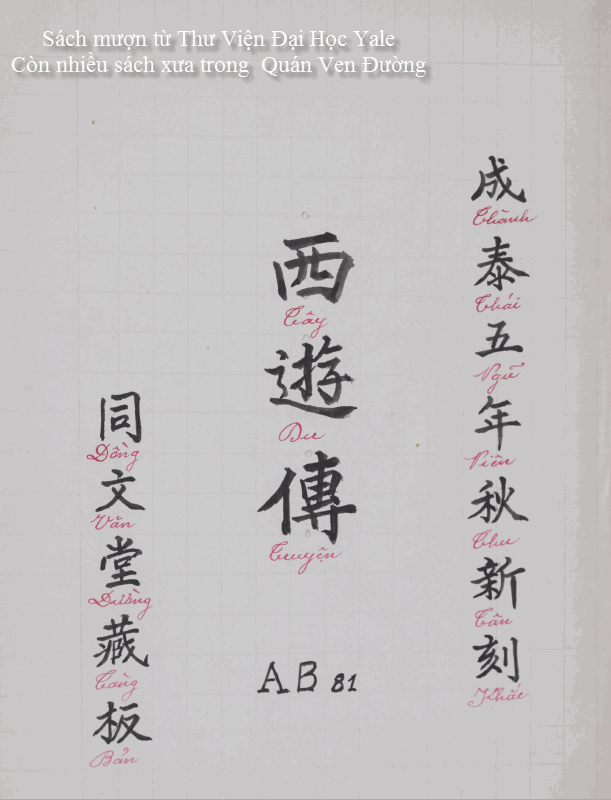 Sách mượn từ Thư Viện Đại Học Yale
Còn nhiều sách xưa trong Quán Ven Đường
成泰五年秋新刻
Thành Thái Ngũ Niên Thu Tân Khắc
西遊傳
Tây Du Truyện
同文堂藏板
Đồng Văn Đường Tàng Bản
AB 81